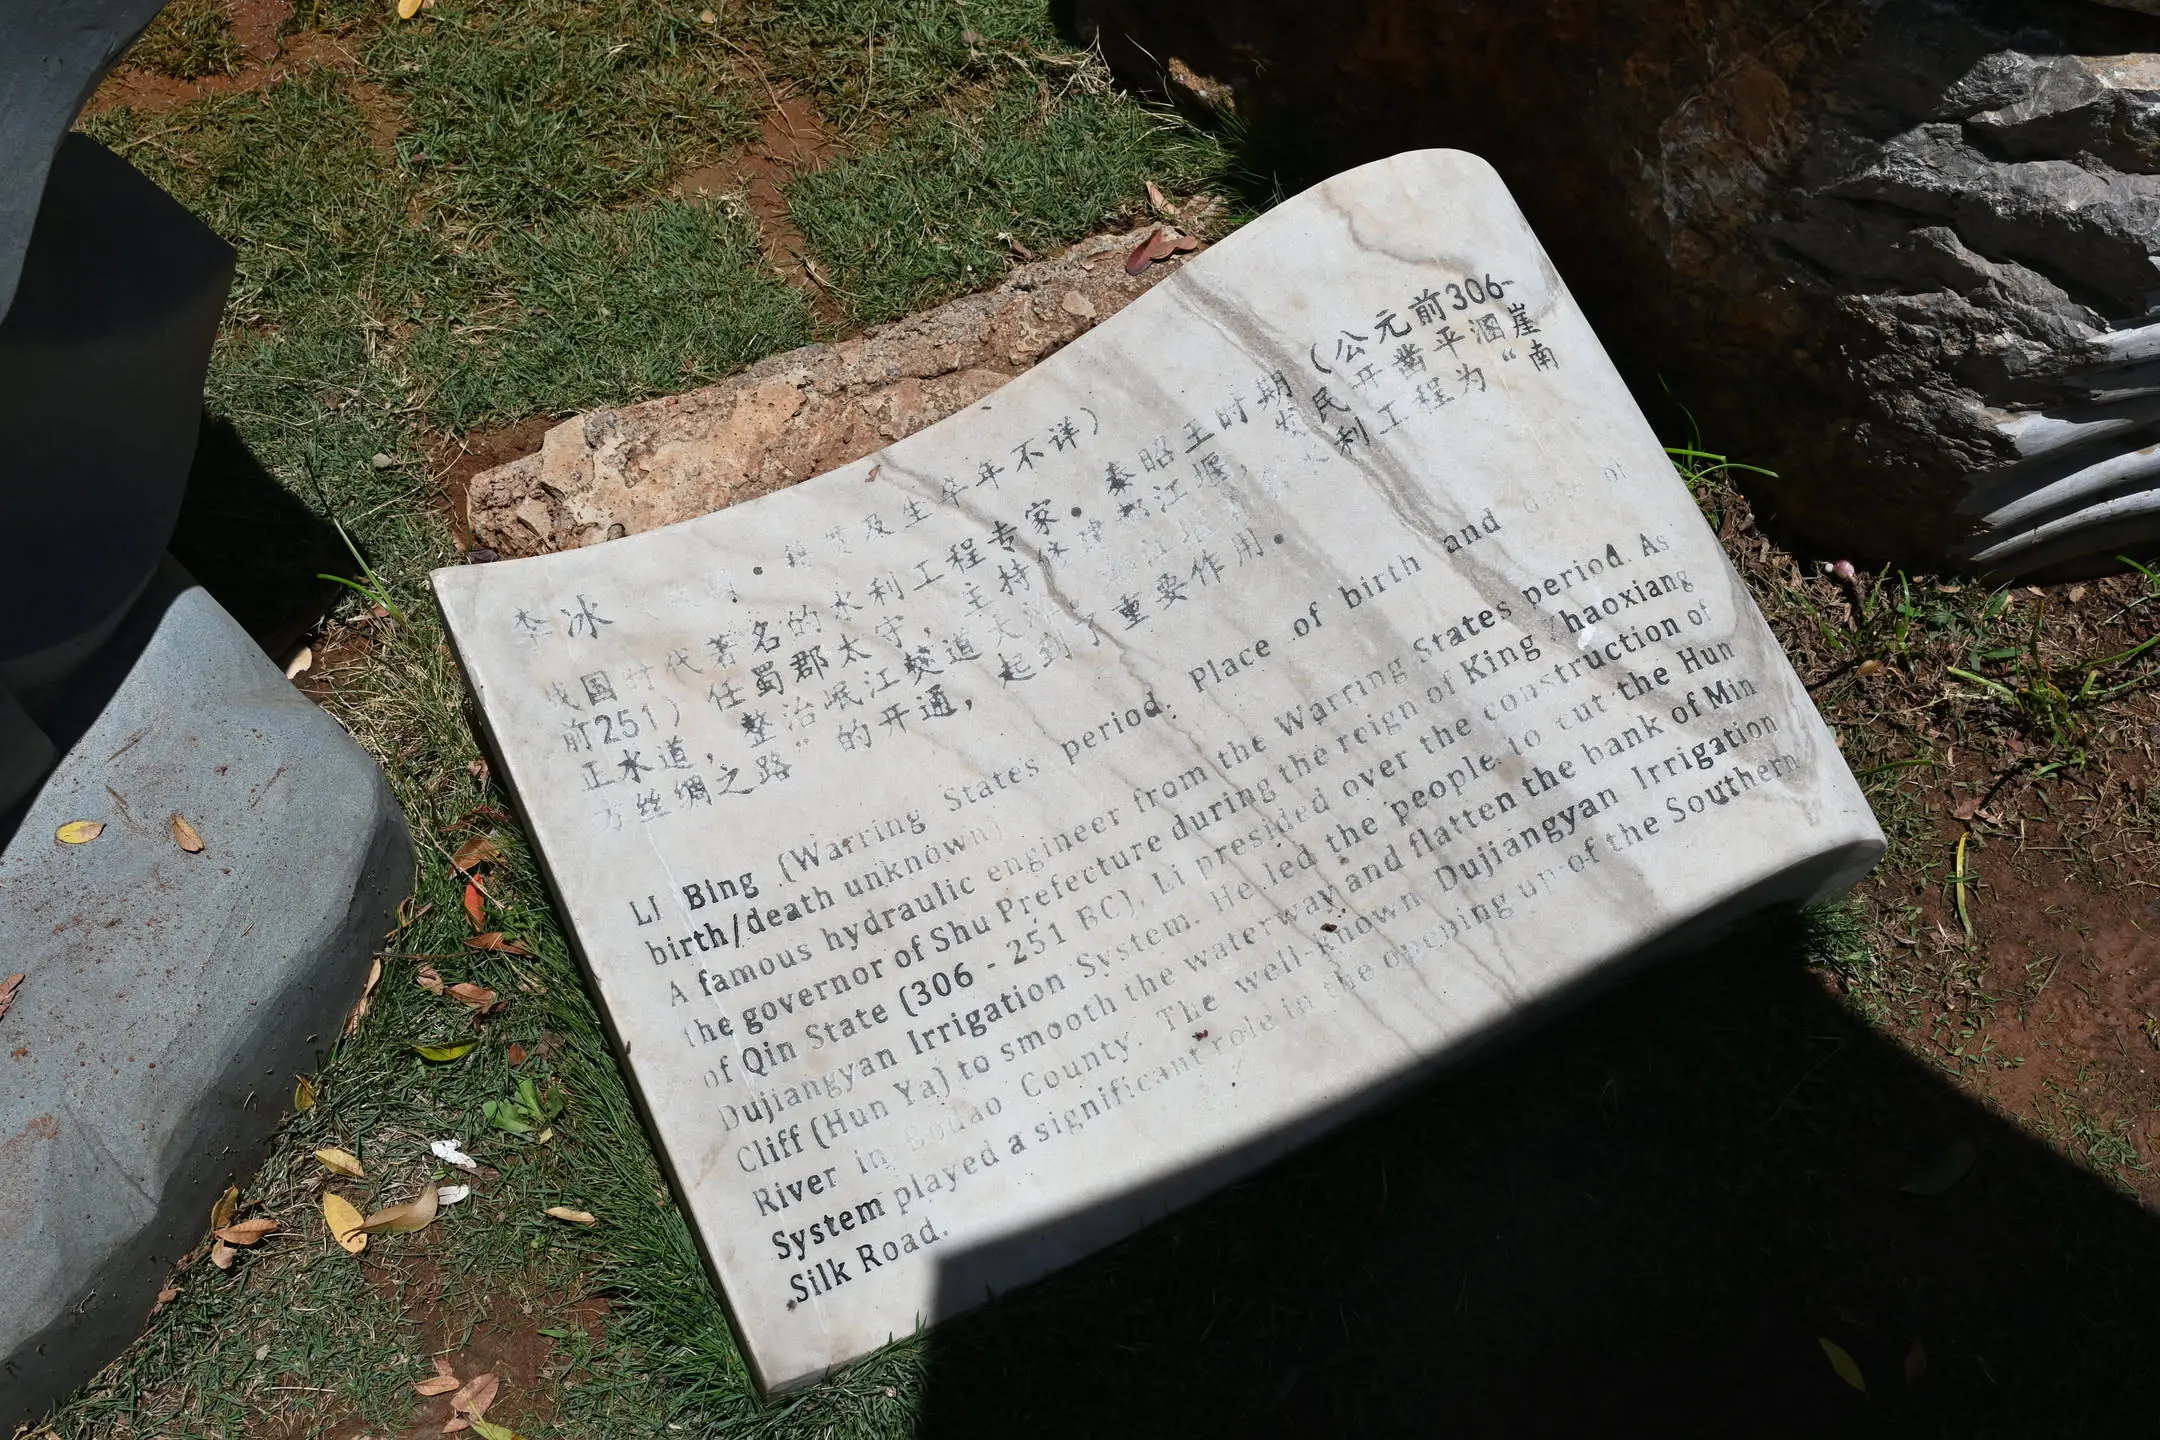 李冰 ・籍贯及生卒年不详）
战国时代著名的水利工程专家。秦昭王时期（公元前306-
前251）任蜀郡太守，主持修建都江堰，发民开凿平溷崖
正水道，整治岷江僰道大滩 江堰 水利工程为“南
方丝绸之路”的开通，起到了重要作用。
LI Bing (Warring States period. Place of birth and date of
birth/death unknown)
A famous hydraulic engineer from the Warring States period. As
the governor of Shu Prefecture during the reign of King Zhaoxiang
of Qin State (306 - 251 BC), Li presided over the construction of
Dujiangyan Irrigation System. He led the people to cut the Hun
Cliff (Hun Ya) to smooth the waterway and flatten the bank of Min
River in Bodao County. The well-known Dujiangyan Irrigation
System played a significant role in the opening up of the Southern
Silk Road.